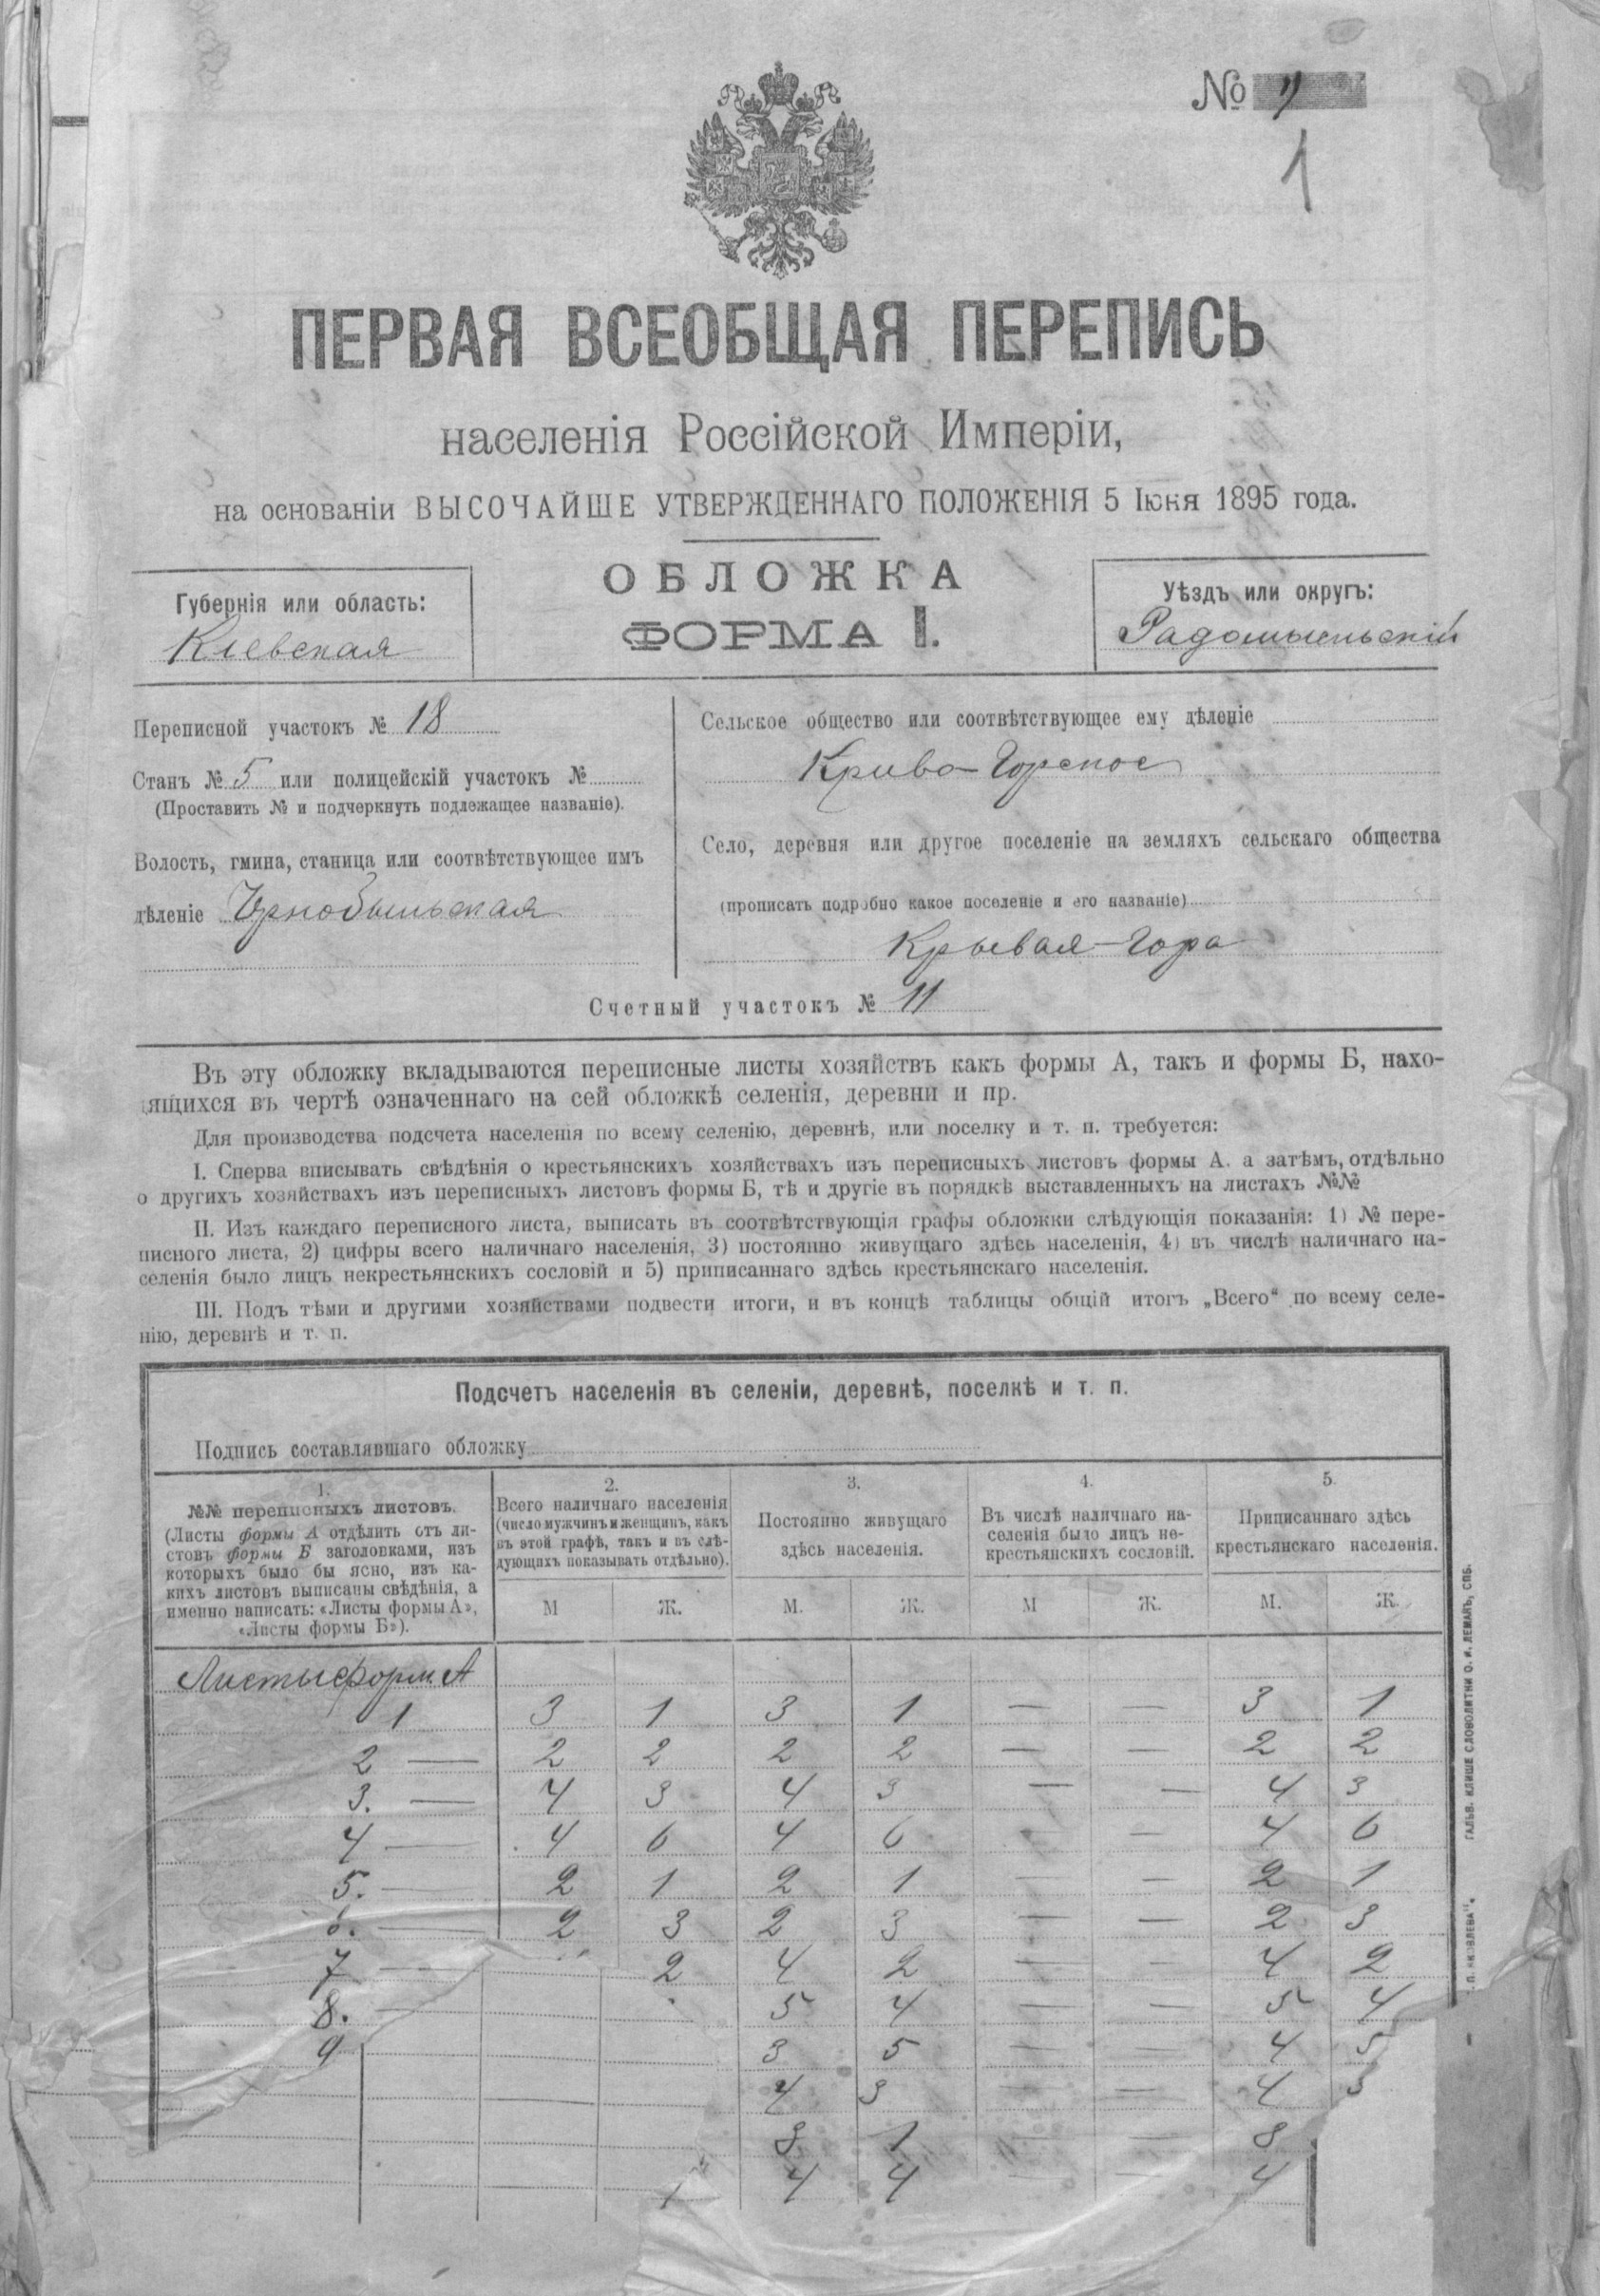 №
1
ПЕРВАЯ ВСЕОБЩАЯ ПЕРЕПИСЬ
населенія Россійской Имперіи,
на основаніи ВЫСОЧАЙШЕ УТВЕРЖДЕННАГО ПОЛОЖЕНІЯ 5 Іюня 1895 года.
ОБЛОЖКА
ФОРМА I.
Губернія или область:
Кіевская
Уѣздъ или округъ:
Радомысльскій
Переписной участокъ № 18
Станъ № 5 или полицейскій участокъ №
(Проставить № и подчеркнуть подлежащее названіе).
Волость, гмина, станица или соотвѣтствующее имъ
дѣленіе Чернобыльская
Сельское общество или соотвѣтствующее ему дѣленіе
Криво-Горское
Село, деревня или другое поселеніе на земляхъ сельскаго общества
(прописать подробно какое поселеніе и его названіе)
Крывая-Гора
Счетный участокъ № 11
Въ эту обложку вкладываются переписные листы хозяйствъ какъ формы А, такъ и формы Б, нахо-
дящихся въ чертѣ означеннаго на сей обложкѣ селенія, деревни и пр.
Для производства подсчета населенія по всему селенію, деревнѣ, или поселку и т. п. требуется:
I. Сперва вписывать свѣдѣнія о крестьянскихъ хозяйствахъ изъ переписныхъ листовъ формы А. а затѣмъ, отдѣльно
о другихъ хозяйствахъ изъ переписныхъ листовъ формы Б, тѣ и другіе въ порядкѣ выставленныхъ на листахъ №№
II. Изъ каждаго переписного листа, выписать въ соотвѣтствующія графы обложки слѣдующія показанія: 1) № пере-
писного листа, 2) цифры всего наличнаго населенія, 3) постоянно живущаго здѣсь населенія, 4) въ числѣ наличнаго на-
селенія было лицъ некрестьянскихъ сословій и 5) приписаннаго здѣсь крестьянскаго населенія.
III. Подъ тѣми и другими хозяйствами подвести итоги, и въ концѣ таблицы общій итогъ „Всего“ по всему селе-
нію, деревнѣ и т. п.
Подсчетъ населенія въ селеніи, деревнѣ, поселкѣ и т. п.
Подпись составлявшаго обложку
1.
№№ переписныхъ листовъ.
(Листы формы А отдѣлить отъ ли-
стовъ формы Б заголовками, изъ
которыхъ было бы ясно, изъ ка-
кихъ листовъ выписаны свѣдѣнія, а
именно написать: «Листы формы А»,
«Листы формы Б»).
2.
Всего наличнаго населенія
(число мужчинъ и женщинъ, какъ
въ этой графѣ, такъ и въ слѣ-
дующихъ показывать отдѣльно).
3.
Постоянно живущаго
здѣсь населенія.
4.
Въ числѣ наличнаго на-
селенія было лицъ не-
крестьянскихъ сословій.
5.
Приписаннаго здѣсь
крестьянскаго населенія.
М Ж. М. Ж. М Ж. М. Ж.
Листы форм. А
1 3 1 3 1 — — 3 1
2 — 2 2 2 2 — — 2 2
3. — 4 3 4 3 — — 4 3
4 — 4 6 4 6 - — 4 6
5. — 2 1 2 1 — — 2 1
6. — 2 3 2 3 — — 2 3
7 — 2 4 2 — — 4 2
8. — 5 4 — — 5 4
9 3 5 — — 4 5
4 3 — — 4 3
8 1 — — 8
4 4 — — 4
ГАЛЬВ. КЛИШЕ СЛОВОЛИТНИ О. И. ЛЕМАНЪ, СПБ.